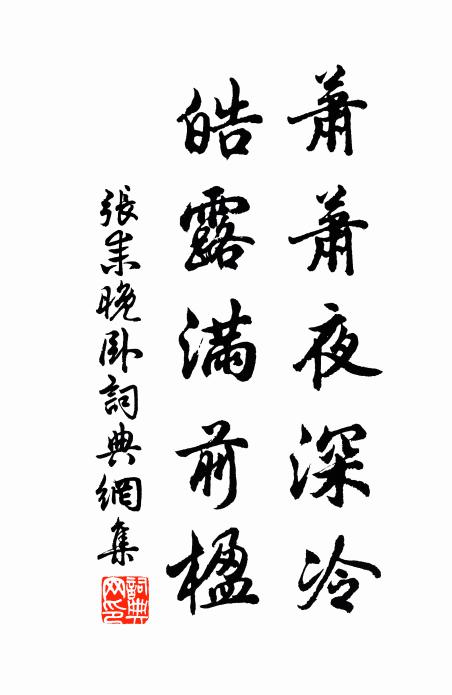 蕭蕭夜深冷
皓露滿前楹
張耒晚臥詞典網集
詞典網印